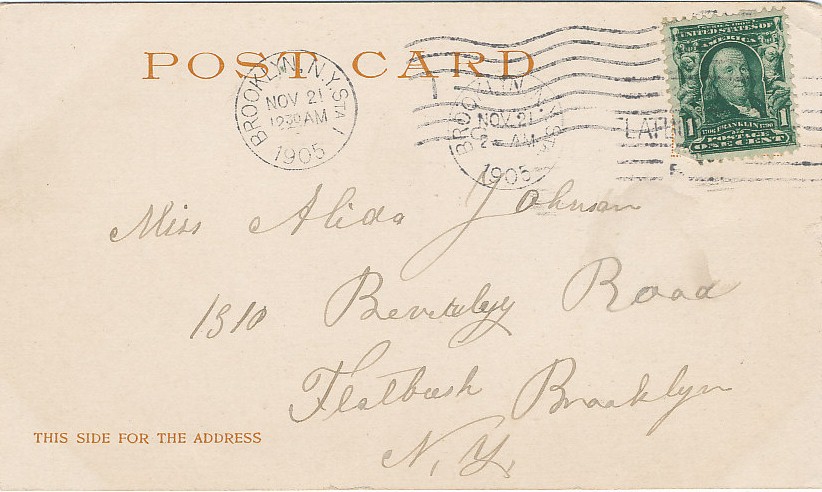 POST CARD
BROOKLYN, N.Y. STA 1
NOV 21
12 30 AM
1905
BROOKLYN
NOV. 21
AM
1905
UNITED STATES OF AMERICA
1 1
FRANKLIN
POSTAGE
ONE CENT
Miss Alida Johnson
1310 Beverley Road
Flatbush Brooklyn
N. Y.
THIS SIDE FOR THE ADDRESS